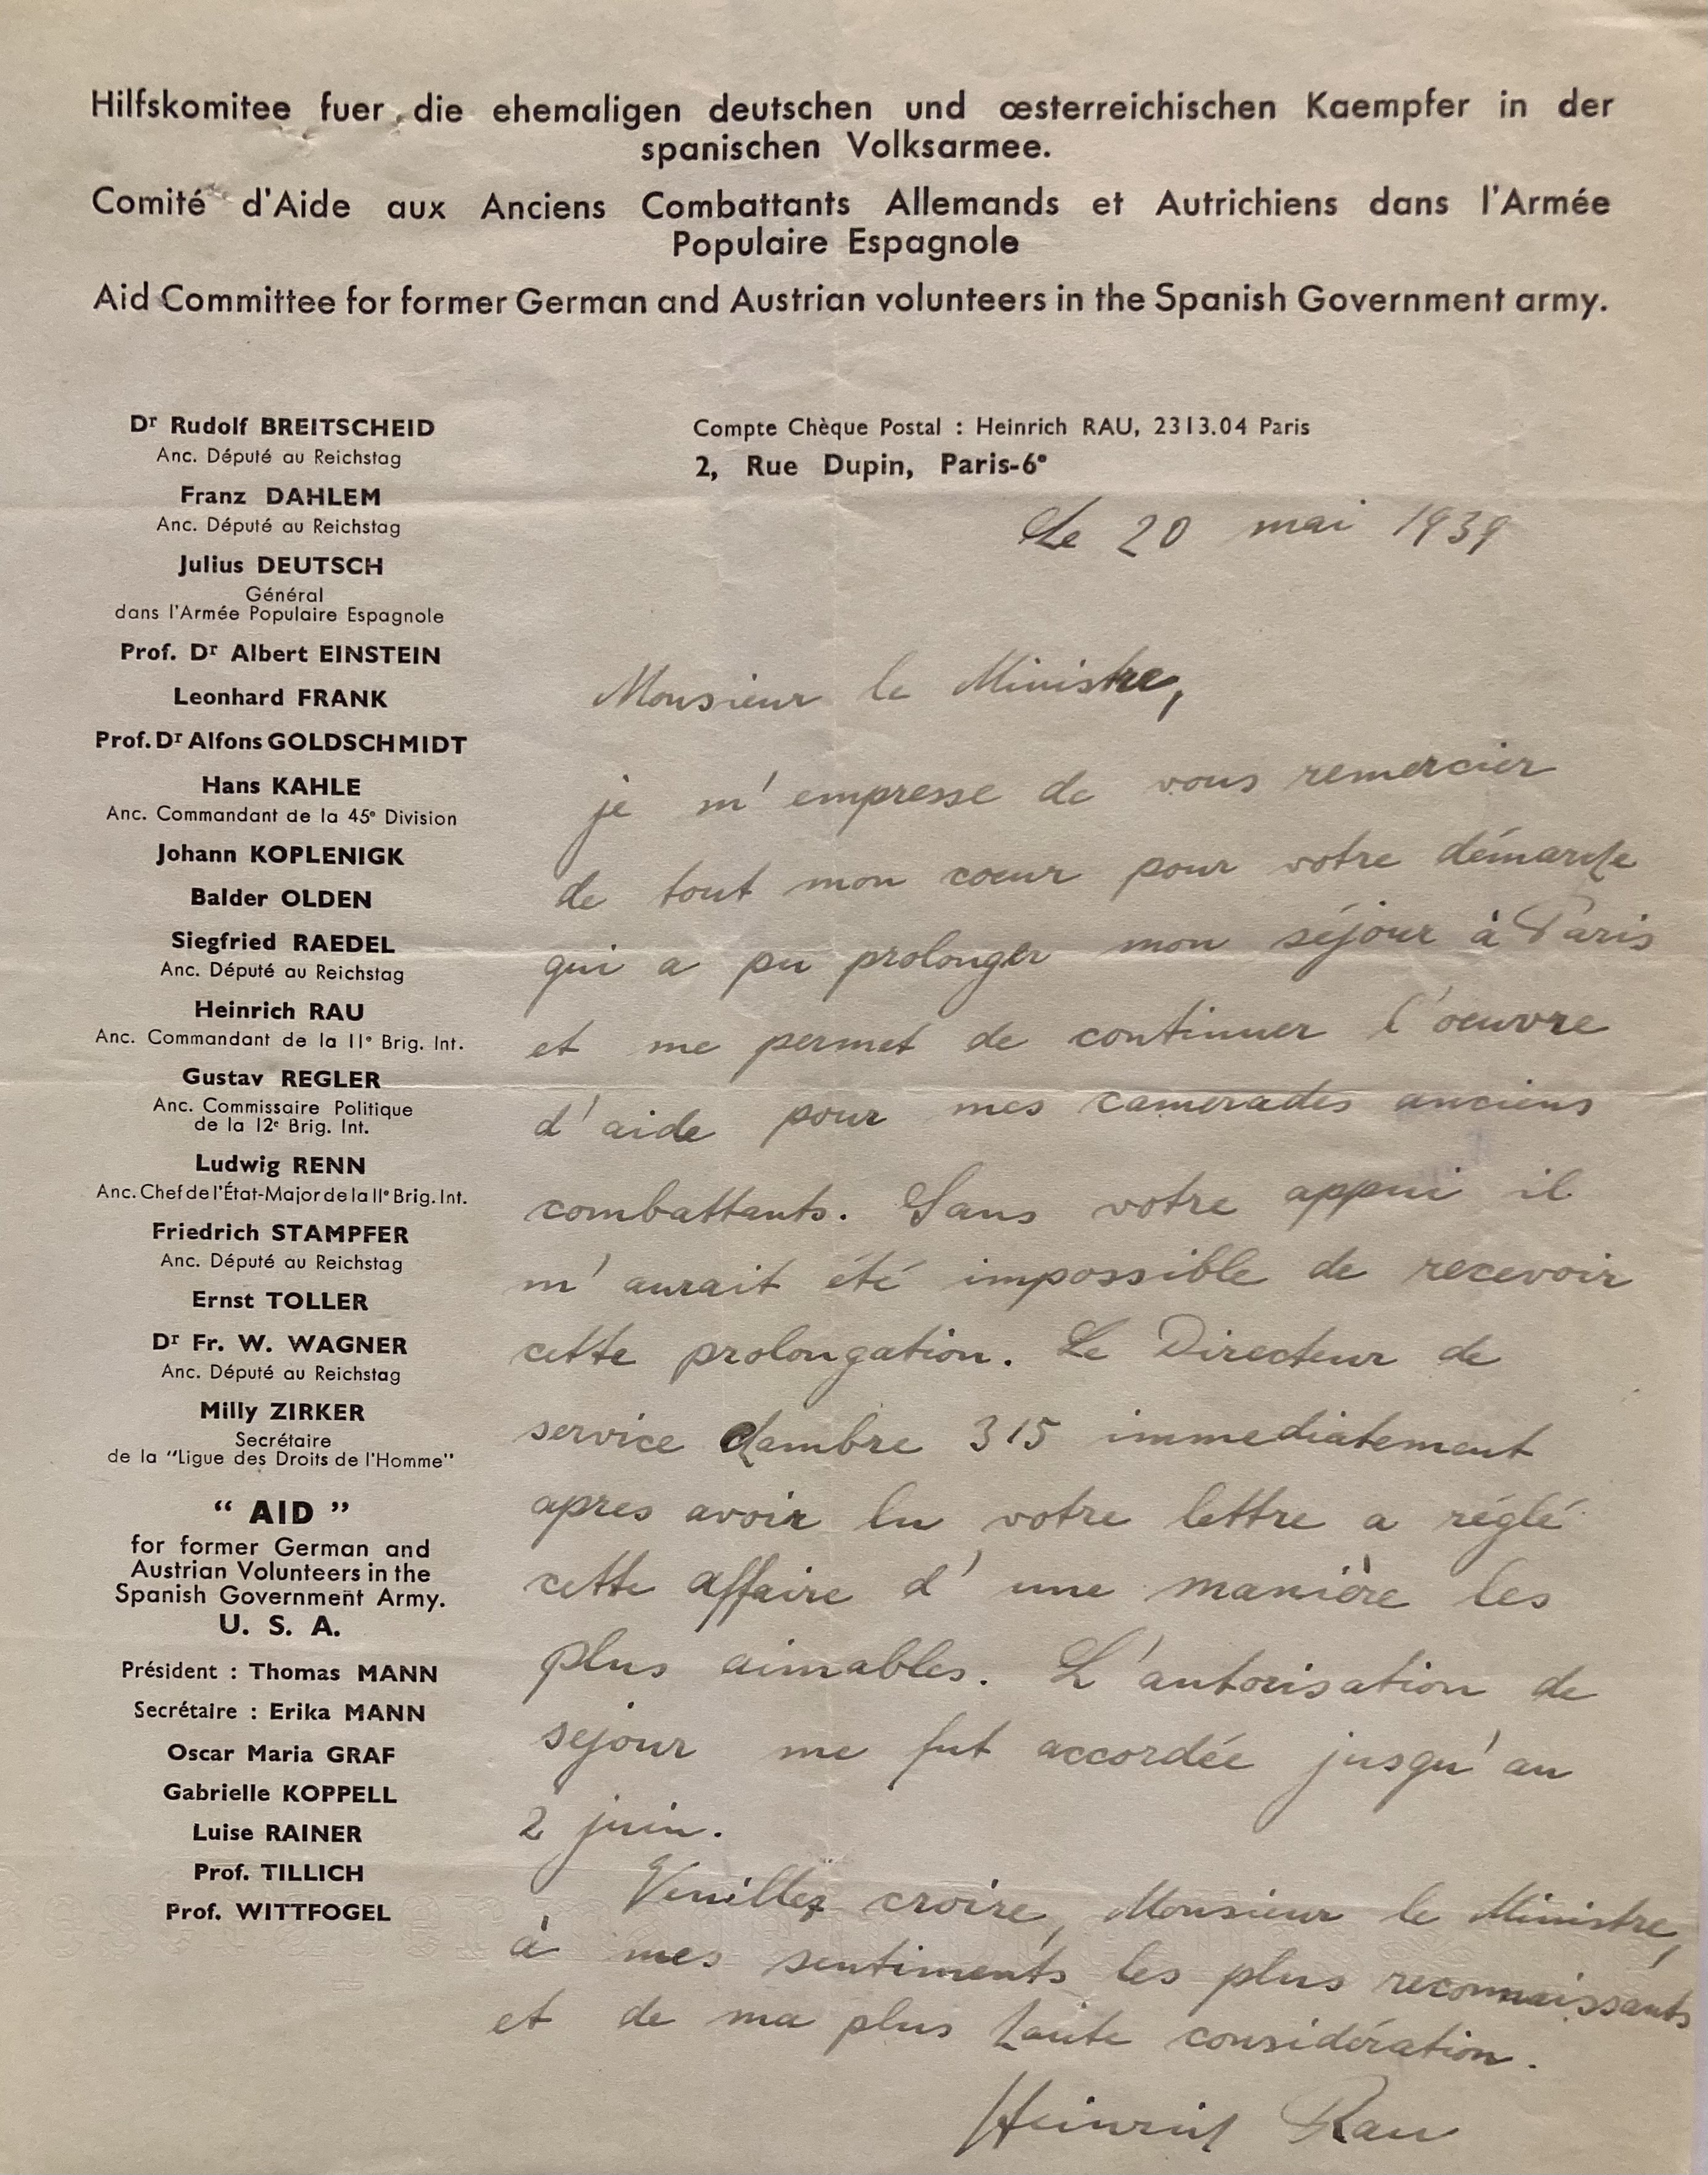 Hilfskomitee fuer die ehemaligen deutschen und œsterreichischen Kaempfer in der
spanischen Volksarmee.
Comité d'Aide aux Anciens Combattants Allemands et Autrichiens dans l'Armée
Populaire Espagnole
Aid Committee for former German and Austrian volunteers in the Spanish Government army.
Dr Rudolf BREITSCHEID
Anc. Député au Reichstag
Franz DAHLEM
Anc. Député au Reichstag
Julius DEUTSCH
Général
dans l'Armée Populaire Espagnole
Prof. Dr Albert EINSTEIN
Leonhard FRANK
Prof. Dr Alfons GOLDSCHMIDT
Hans KAHLE
Anc. Commandant de la 45e Division
Johann KOPLENIGK
Balder OLDEN
Siegfried RAEDEL
Anc. Député au Reichstag
Heinrich RAU
Anc. Commandant de la 11e Brig. Int.
Gustav REGLER
Anc. Commissaire Politique
de la 12e Brig. Int.
Ludwig RENN
Anc. Chef de l'État-Major de la 11e Brig. Int.
Friedrich STAMPFER
Anc. Député au Reichstag
Ernst TOLLER
Dr Fr. W. WAGNER
Anc. Député au Reichstag
Milly ZIRKER
Secrétaire
de la "Ligue des Droits de l'Homme"
" AID "
for former German and
Austrian Volunteers in the
Spanish Government Army.
U. S. A.
Président : Thomas MANN
Secrétaire : Erika MANN
Oscar Maria GRAF
Gabrielle KOPPELL
Luise RAINER
Prof. TILLICH
Prof. WITTFOGEL
Compte Chèque Postal : Heinrich RAU, 2313.04 Paris
2, Rue Dupin, Paris-6e
Le 20 mai 1939
Monsieur le Ministre,
je m'empresse de vous remercier
de tout mon coeur pour votre démarche
qui a pu prolonger mon séjour à Paris
et me permet de continuer l'oeuvre
d'aide pour mes camerades anciens
combattants. Sans votre appui il
m'aurait été impossible de recevoir
cette prolongation. Le Directeur de
service chambre 315 immediatement
apres avoir lu votre lettre a réglé
cette affaire d'une manière les
plus aimables. L'autorisation de
sejour me fut accordée jusqu'au
2 juin.
Veuillez croire, Monsieur le Ministre,
à mes sentiments les plus reconnaissants
et de ma plus haute considération.
Heinrich Rau